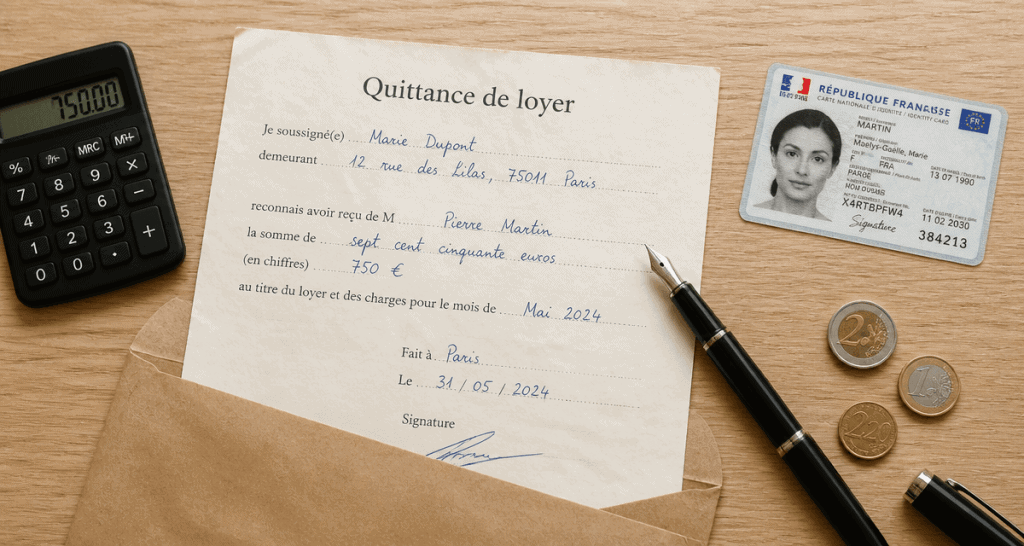 750.00
%
MRC
M+
×
7
8
9
−
4
5
6
1
2
3
+
0
0
.
Quittance de loyer
Je soussigné(e) Marie Dupont
demeurant 12 rue des Lilas, 75011 Paris
reconnais avoir reçu de M Pierre Martin
la somme de sept cent cinquante euros
(en chiffres) 750 €
au titre du loyer et des charges pour le mois de Mai 2024
Fait à Paris
Le 31 / 05 / 2024
Signature
RÉPUBLIQUE FRANÇAISE
CARTE NATIONALE D'IDENTITÉ / IDENTITY CARD
FR
MARTIN
Maelys-Gaëlle, Marie
F FRA
13 07 1990
X4RTBPFW4
11 02 2030
Signature
384213
2
1
220